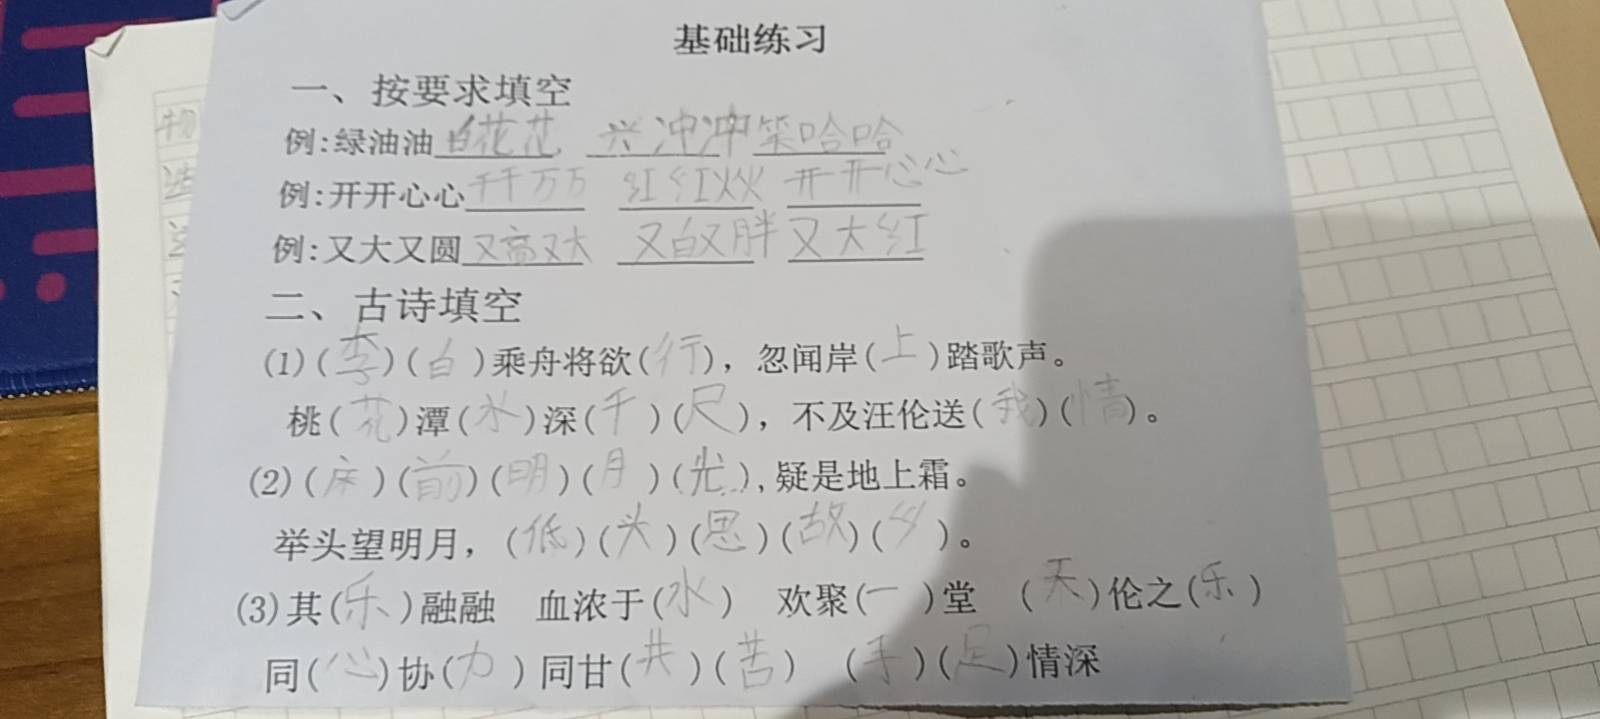 基础练习
一、按要求填空
例:绿油油白花花 兴冲冲 笑哈哈
例:开开心心千千万万 红红火火 开开心心
例:又大又圆又高又大 又白又胖 又大红
二、古诗填空
(1)(李)(白)乘舟将欲(行)，忽闻岸(上)踏歌声。
桃(花)潭(水)深(千)(尺)，不及汪伦送(我)(情)。
(2)(床)(前)(明)(月)(光),疑是地上霜。
举头望明月，(低)(头)(思)(故)(乡)。
(3)其(乐)融融 血浓于(水) 欢聚(一)堂 (天)伦之(乐)
同(心)协(力) 同甘(共)(苦) (手)(足)情深
物
造